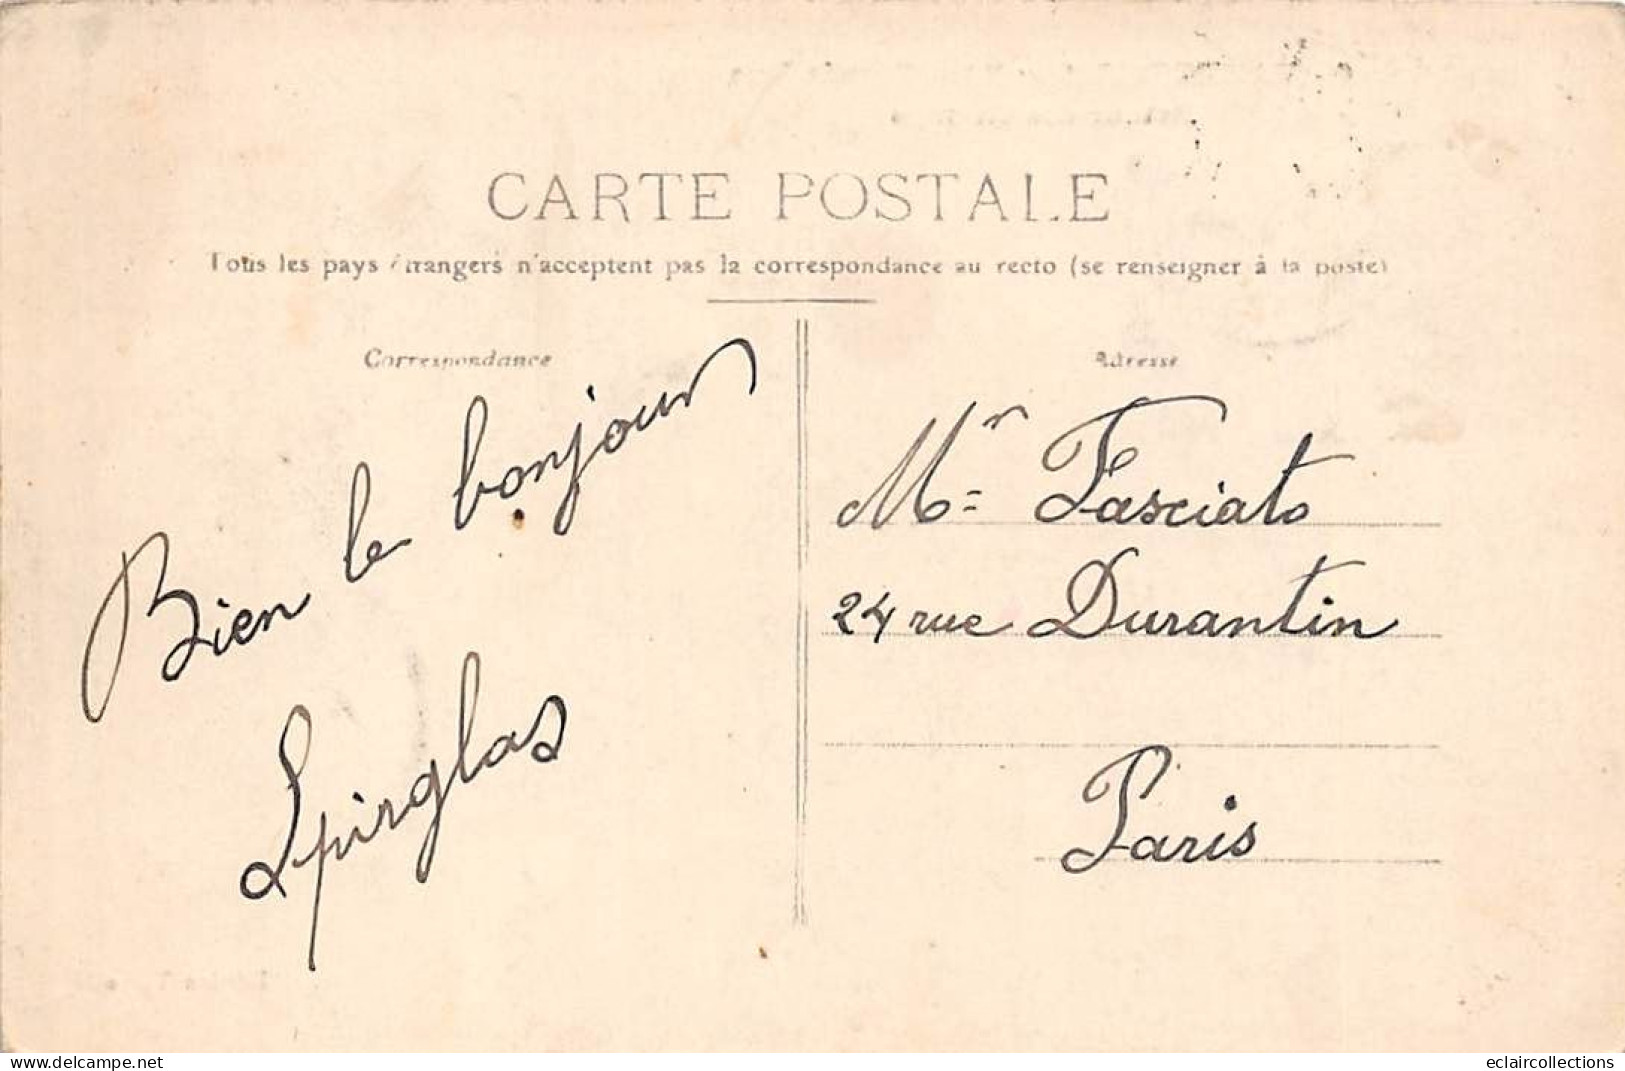 CARTE POSTALE
Tous les pays étrangers n'acceptent pas la correspondance au recto (se renseigner à la poste)
Correspondance
Adresse
Bien le bonjour
Spirglas
Mr = Fasciato
24 rue Durantin
Paris
delcampe.net
eclaircollections